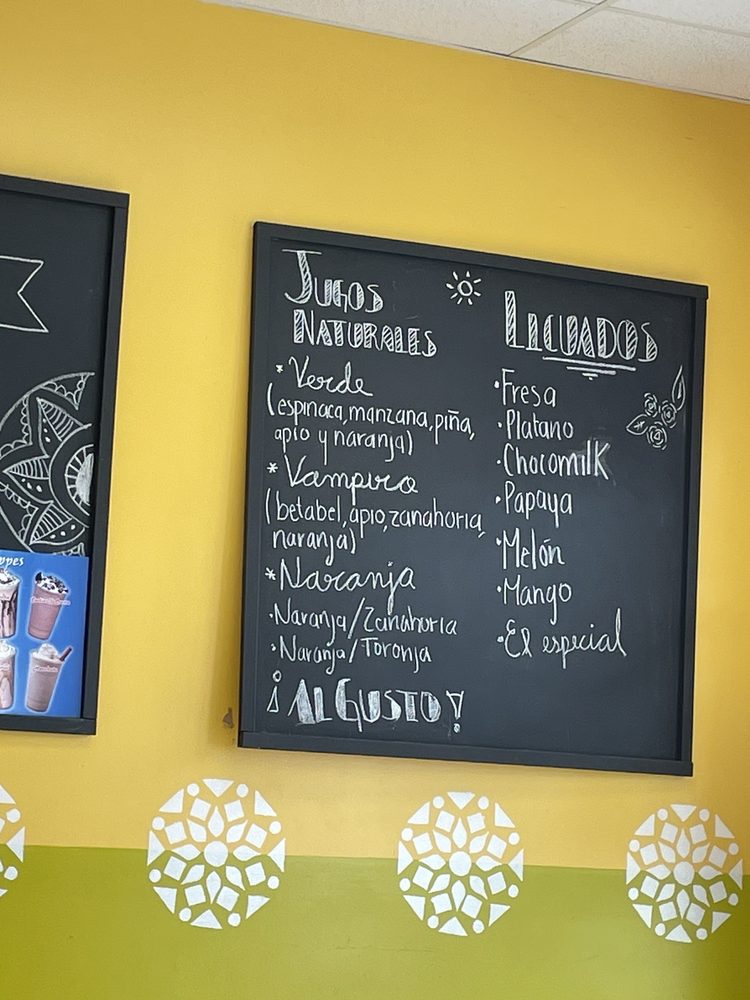 Jugos
Naturales
* Verde
(espinaca, manzana, piña,
apio y naranja)
* Vampiro
(betabel, apio, zanahoria,
naranja)
* Naranja
· Naranja/Zanahoria
· Naranja/Toronja
¡Al Gusto!
Licuados
· Fresa
· Platano
· Chocomilk
· Papaya
· Melón
· Mango
· El especial